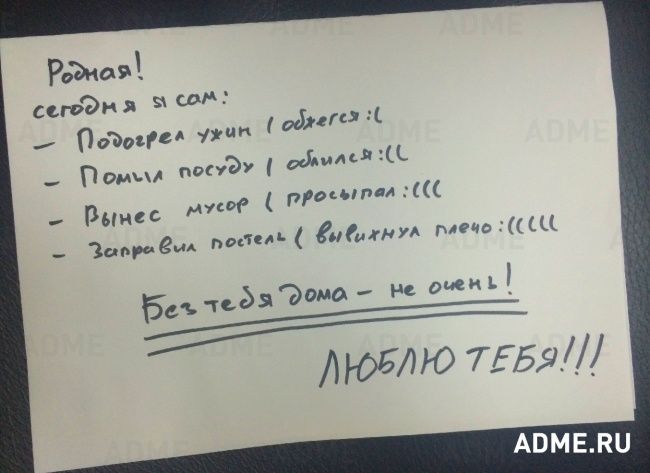 Родная!
сегодня я сам:
– Подогрел ужин ( обжегся :(
– Помыл посуду ( облился :((
– Вынес мусор ( просыпал :(((
– Заправил постель ( вывихнул плечо :(((((
Без тебя дома – не очень!
ЛЮБЛЮ ТЕБЯ!!!
ADME.RU